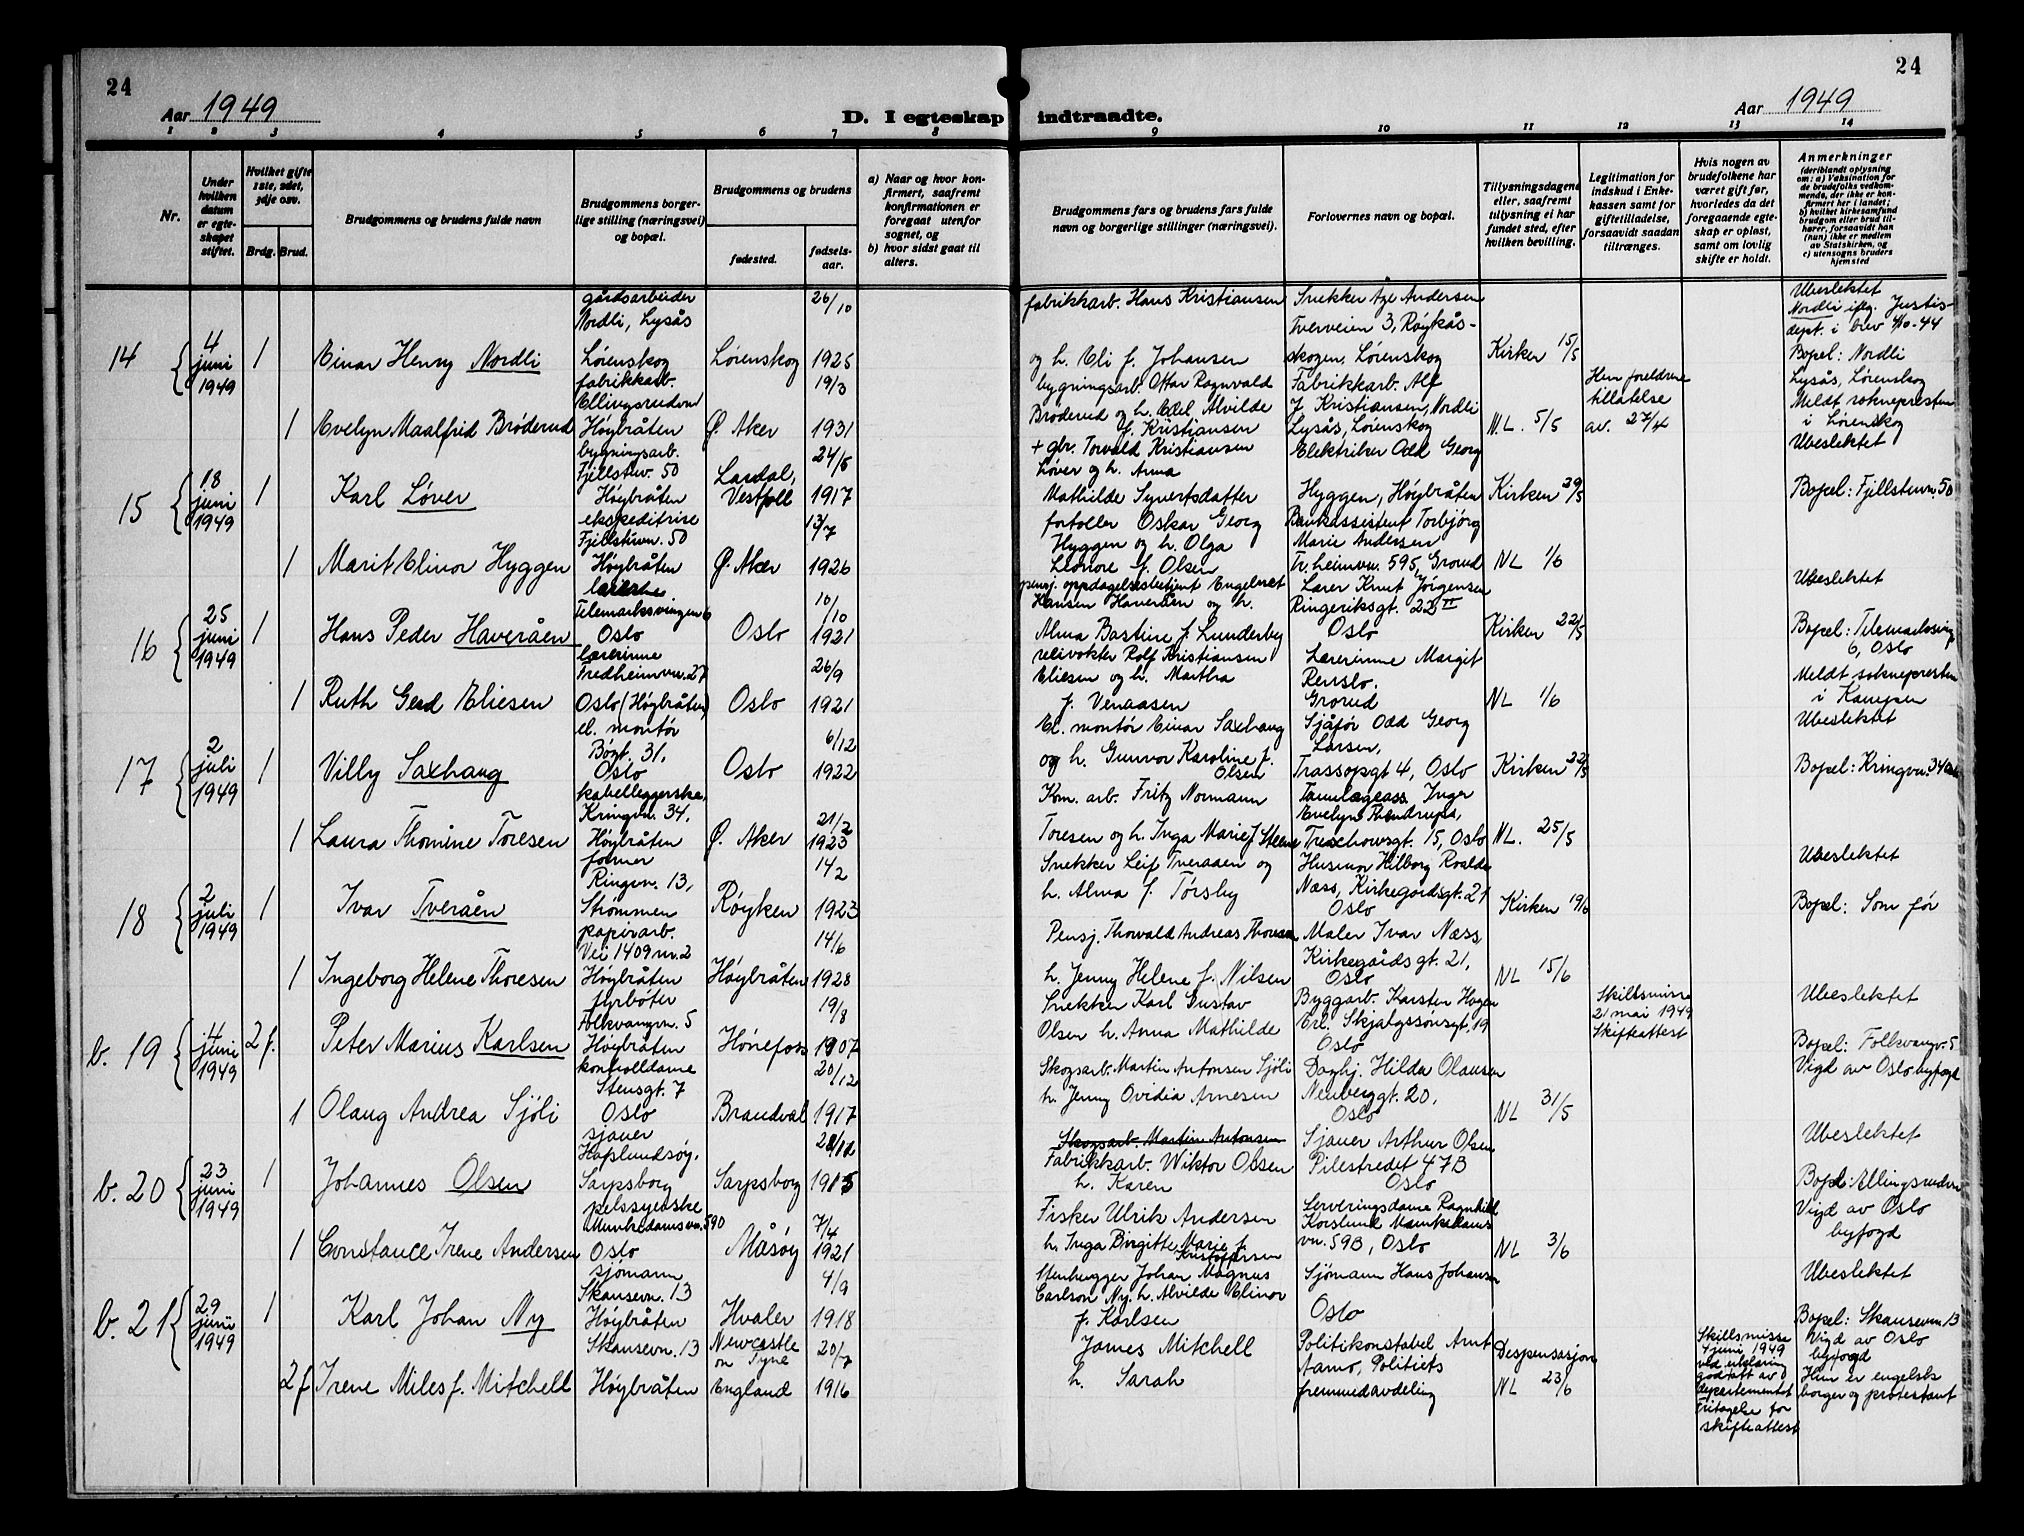 24
24
Aar 1949
D. I egteskap indtraadte.
Aar 1949
1 2 3 4 5 6 7 8 9 10 11 12 13 14
Nr.
Under hvilken datum er egteskapet stiftet.
Hvilket gifte 1ste, 2det, 3dje osv.
Brdg. Brud.
Brudgommens og brudens fulde navn
Brudgommens borgerlige stilling (næringsvei) og bopæl.
Brudgommens og brudens
fødested.
fødselsaar.
a) Naar og hvor konfirmert, saafremt konfirmationen er foregaat utenfor sognet, og
b) hvor sidst gaat til alters.
Brudgommens fars og brudens fars fulde navn og borgerlige stillinger (næringsvei).
Forlovernes navn og bopæl.
Tillysningsdagene eller, saafremt tillysning ei har fundet sted, efter hvilken bevilling.
Legitimation for indskud i Enkekassen samt for giftetilladelse, forsaavidt saadan tiltrænges.
Hvis nogen av brudefolkene har været gift før, hvorledes da det foregaaende egteskap er opløst, samt om lovlig skifte er holdt.
Anmerkninger
(deriblandt oplysning om: a) Vaksination for de brudefolks vedkommende, der ikke er konfirmert her i landet; b) hvilket kirkesamfund brudgom eller brud tilhører, forsaavidt han (hun) ikke er medlem av Statskirken, og c) utensogns bruders hjemsted
14
4 juni 1949
1
Einar Henry Nordli
gårdsarbeider
Nordli, Lysås
Lørenskog
Lørenskog
26/10
1925
fabrikkarb. Hans Kristiansen
og h. Eli f. Johansen
Snekker Age Andersen
Tverveien 3, Røykås-
skogen, Lørenskog
Kirken 15/5
Ubeslektet
Nordli iflg. Justis-
dept. i brev 4/10-44
Bopel: Nordli
Lysås, Lørenskog
Meldt soknepresten
i Lørenskog
1
Evelyn Maalfrid Brøderud
fabrikkarb.
Ellingsrudvn
Høybråten
Ø. Aker
19/3
1931
bygningsarb. Ottar Ragnvald
Brøderud og h. Edel Alvilde
f. Kristiansen
Fabrikkarb. Alf
J. Kristiansen, Nordli
Lysås, Lørenskog
N.L. 5/5
Hen foreldrene
tillatelse
av. 27/4
15
18 juni 1949
1
Karl Løver
bygningsarb.
Fjellstuv. 50
Høybråten
Lardal,
Vestfoll
24/5
1917
+ gbr. Torvald Kristiansen
Løver og h. Anna
Mathilde Synertsdatter
Elektriker Odd Georg
Hyggen, Høybråten
Kirken 29/5
Ubeslektet
Bopel: Fjellstuvn. 50
1
Marit Elinor Hyggen
ekspeditrise
Fjellstuvn. 50
Høybråten
Ø. Aker
13/7
1926
fortoller Oskar Georg
Hyggen og h. Olga
Leonore f. Olsen
Bankassistent Torbjörg
Marie Andersen
Tr.heimvn. 595, Grorud
NL 1/6
16
25 juni 1949
1
Hans Peder Haveråen
Telemarksvingen 6
Oslo
Oslo
10/10
1921
pensj. oppdagelsesbetjent Engelbret
Hansen Haveråen og h.
Alma Bastine f. Lunderby
Lærer Knut Jørgensen
Ringeriksgt. 22 II
Oslo
Kirken 22/5
Ubeslektet
Bopel: Telemarksving
6, Oslo
Meldt sokneprsten
i Kampen
1
Ruth Gerd Eliesen
Lærerinne
Fredheimvn. 27
Oslo (Høybråten)
Oslo
26/9
1921
Rolf Kristiansen
Eliesen og h. Martha
f. Venaasen
Lærerinne Margit
Grorud
NL 1/6
17
2 juli 1949
1
Villy Saxhaug
el. montør
Bøgt. 31,
Oslo
Oslo
6/12
1922
El. montør Einar Saxhaug
og h. Gunvor Karoline f.
Olsen
Sjåfør Odd Georg
Larsen,
Trassopsgt 4, Oslo
Kirken 22/5
Ubeslektet
Bopel: Kringvn. 34
1
Laura Thomine Toresen
kabelleggerske,
Kringvn. 34,
Høybråten
Ø. Aker
21/2
1923
Kom. arb. Fritz Normann
Toresen og h. Inga Marie f. Steene
Tannlegeass. Inger
Evelyn
Treschowsgt. 15, Oslo
NL. 25/5
18
2 juli 1949
1
Ivar Tveråen
former
Ringvn. 13,
Strømmen
Røyken
14/2
1923
Snekker Leif Tveraaen og
h. Alma f. Tørsby
Husmor Hilborg Roalda
Næss, Kirkegårdsgt. 21
Oslo
Kirken 19/6
Ubeslektet
Bopel: Som før
1
Ingeborg Helene Thoresen
papirarb.
Vei 1409 nr. 2
Høybråten
Høybråten
14/6
1928
Pensj. Thorvald Andreas Thoresen
h. Jenny Helene f. Nilsen
Maler Ivar Næss
Kirkegårdsgt. 21,
Oslo
NL 15/6
b. 19
4 juni 1949
2 f.
Peter Marius Karlsen
fyrbøter
Folkvangvn. 5
Høybråten
Hønefoss
19/8
1907
Snekker Karl Gustav
Olsen h. Anna Mathilde
Byggarb. Karsten Hagen
Erl. Skjalgssönsgt, 19
Oslo
Skillsmisse
21 mai 1949
Skifteattest
Ubeslektet
Bopel: Folkvangv. 5
Vigd av Oslo byfogd
1
Olaug Andrea Sjöli
kontrolldame
Stensgt. 7
Oslo
Brandval
20/12
1917
Skogsarb. Martin Antonsen Sjöli
h. Jenny Ovidia Arnesen
Daghj. Hilda Olausen
Neuberggt. 20,
Oslo
NL 31/5
b. 20
23 juni 1949
1
Johannes Olsen
sjauer
Hafslundsöy,
Sarpsborg
Sarpsborg
Skogsarb. Martin Antonsen
Fabrikkarb. Wiktor Olsen
h. Karen
Sjauer Arthur Olsen
Pilestredet 47B
Oslo
Ubeslektet
Bopel: Ellingsrudvn
Vigd av Oslo
byfogd
1
Constance Irene Andersen
pelssyerske
Munkedamsvn. 590
Oslo
Måsøy
7/4
1921
Fisker Ulrik Andersen
h. Inga Birgitte Marie f.
Kristoffersen
Serveringsdame Ragnhild
Korslund Munkedams
vn. 59B, Oslo
NL 3/6
b. 21
29 juni 1949
1
Karl Johan Ny
sjømann
Skansevn. 13
Høybråten
Hvaler
4/9
1918
Stenhugger Johan Magnus
Carlson Ny. h. Alvilde Elinor
f. Karlsen
Sjømann Hans Johansen
Oslo
Ubeslektet
Bopel: Skansevn 13
Vigd av Oslo
byfogd
Hun er engelsk
borger og protestant
2 f
Irene Miles f. Mitchell
Skansevn. 13
Høybråten
Newcastle
on Tyne
England
20/7
1916
James Mitchell
h. Sarah
Politikonstabel Arnt
Aamo, Politiets
fremmedavdeling
Despensasjon
NL 23/6
Skillsmisse
4 juni 1949
ved erklæring
godtatt av
departementet
Fritagelse for
skifteattest